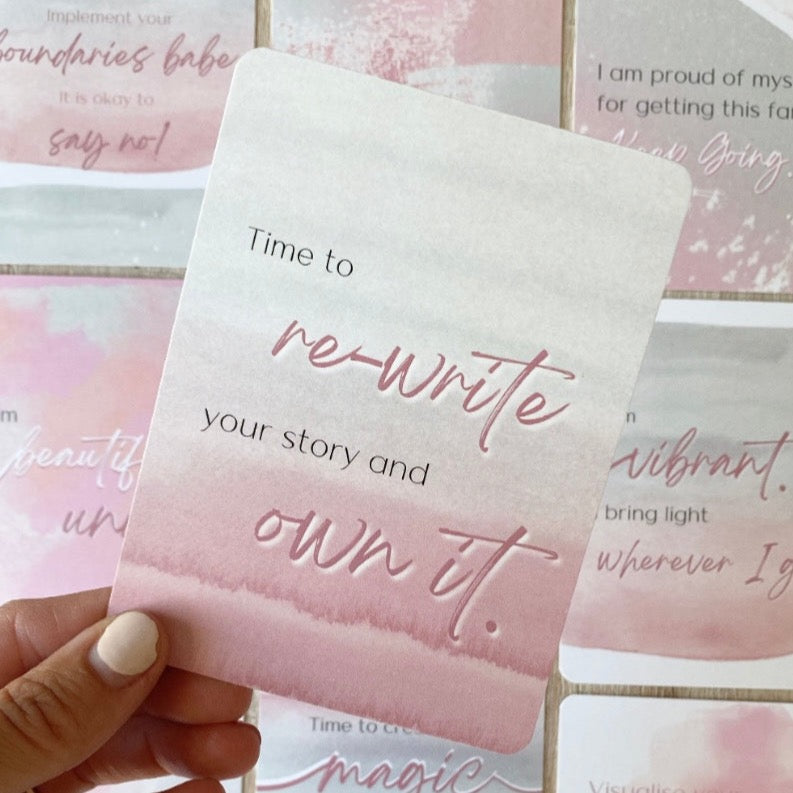 Implement your
boundaries babe
It is okay to
say no!
I am proud of
for getting this
Keep Going.
Time to
re-write
your story and
own it.
vibrant.
bring light
wherever I
Time to
magic